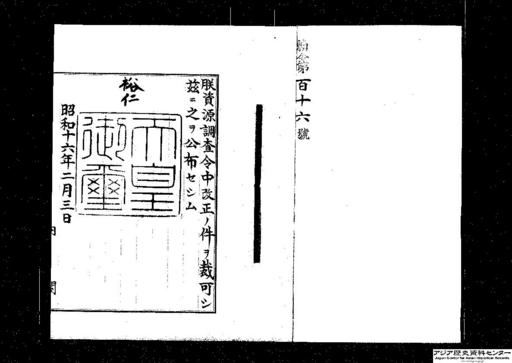 勅令第百十六號
朕資源調査令中改正ノ件ヲ裁可シ
玆ニ之ヲ公布セシム
裕仁
天皇御璽
昭和十六年二月三日
内閣
アジア歴史資料センター
Japan Center for Asian Historical Records